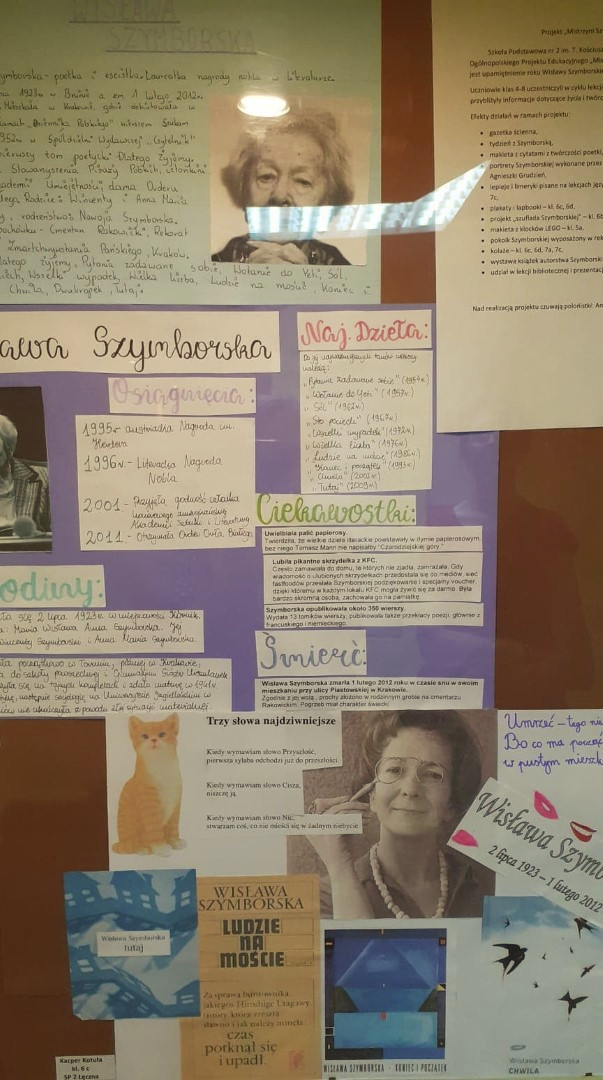 WISŁAWA
SZYMBORSKA
poetka i eseistka. Laureatka nagrody nobla w literaturze.
1923r. w Bninie a zm 1 lutego 2012r.
w Krakowie, gdzie debiutowała w
"Dziennika Polskiego" wierszem Szukam
w Spółdzielni Wydawniczej "Czytelnik"
pierwszy tom poetycki Dlatego żyjemy.
Stowarzyszenia Pisarzy Polskich, członkini
Umiejętności, dama Orderu
Rodzice: Wincenty i Anna Maria
rodzeństwo: Nawoja Szymborska.
Cmentarz Rakowicki,
Zmartwychwstania Pańskiego, Kraków.
żyjemy, Pytania zadawane sobie, Wołanie do Yeti, Sól,
Wszelki wypadek, Wielka liczba, Ludzie na moście, Koniec i
Chwila, Dwukropek, Tutaj.
Projekt „Mistrzyni Sz
Szkoła Podstawowa nr 2 im. T. Kościus
Ogólnopolskiego Projektu Edukacyjnego „Mis
jest upamiętnienie roku Wisławy Szymborskie
Uczniowie klas 4-8 uczestniczyli w cyklu lekcji
przybliżyły informacje dotyczące życia i twórc
Efekty działań w ramach projektu:
• gazetka ścienna,
• tydzień z Szymborską,
• makieta z cytatami z twórczości poetki,
• portrety Szymborskiej wykonane przez
Agnieszki Grudzień,
• lepieje i limeryki pisane na lekcjach języ
7c,
• plakaty i lapbooki – kl. 6c, 6d,
• projekt „szuflada Szymborskiej" – kl. 6b
• makieta z klocków LEGO – kl. 5a,
• pokoik Szymborskiej wyposażony w rek
• kolaże – kl. 6c, 6d, 7a, 7c,
• wystawa książek autorstwa Szymborski
• udział w lekcji bibliotecznej i prezentac
Nad realizacją projektu czuwają polonistki: An
awa Szymborska
Naj. Dzieła:
Do jej najważniejszych tomów wierszy
należą:
„Pytania zadawane sobie" (1954r.)
„Wołanie do Yeti" (1957r.)
„Sól" (1962r.)
„Sto pociech" (1967r.)
„Wszelki wypadek" (1972r.)
„Wielka liczba" (1976r.)
„Ludzie na moście" (1986r.)
„Koniec i początek" (1993r.)
„Chwila" (2002r.)
„Tutaj" (2009r.)
Osiągnięcia:
1995r- austriacka Nagroda im.
Herdera
1996r.- Literacka Nagroda
Nobla
2001- Przyjęła godność członka
honorowego amerykańskiej
Akademii Sztuki i Literatury
2011- Otrzymała Order Orła Białego
Ciekawostki:
Uwielbiała palić papierosy.
Twierdziła, że wielkie dzieła literackie powstawały w dymie papierosowym,
bez niego Tomasz Mann nie napisałby "Czarodziejskiej góry."
Lubiła pikantne skrzydełka z KFC.
Często zamawiała do domu, te których nie zjadła, zamrażała. Gdy
wiadomość o ulubionych skrzydełkach przedostała się do mediów, sieć
fastfoodów przesłała Szymborskiej podziękowanie i specjalny voucher,
dzięki któremu w każdym lokalu KFC mogła żywić się za darmo. Była
bardzo skromną osobą, zachowała go na pamiątkę.
Szymborska opublikowała około 350 wierszy.
Wydała 13 tomików wierszy, publikowała także przekłady poezji, głównie z
francuskiego i niemieckiego.
odziny:
się 2 lipca 1923r w miejscowości Kórnik.
Maria Wisława Anna Szymborska. Jej
Wincenty Szymborski i Anna Maria Szymborska.
początkowo w Toruniu, później w Krakowie,
do szkoły powszechnej i Gimnazjum Sióstr Urszulanek
się na tajnych kompletach i zdała maturę w 1941r.
następnie socjologię na Uniwersytecie Jagiellońskim w
nie ukończyła z powodu złej sytuacji materialnej.
Śmierć:
Wisława Szymborska zmarła 1 lutego 2012 roku w czasie snu w swoim
mieszkaniu przy ulicy Piastowskiej w Krakowie.
Zgodnie z jej wolą, prochy złożono w rodzinnym grobie na cmentarzu
Rakowickim. Pogrzeb miał charakter świecki.
Trzy słowa najdziwniejsze
Kiedy wymawiam słowo Przyszłość,
pierwsza sylaba odchodzi już do przeszłości.
Kiedy wymawiam słowo Cisza,
niszczę ją.
Kiedy wymawiam słowo Nic,
stwarzam coś, co nie mieści się w żadnym niebycie
Umrzeć – tego nie
Bo co ma począć
w pustym mieszk
Wisława Szymbo
2 lipca 1923 – 1 lutego 2012
Wisława Szymborska
tutaj
WISŁAWA
SZYMBORSKA
LUDZIE
NA
MOŚCIE
Za sprawą buntownika,
jakiegoś Hiroshige Utagawy
(istoty, która zresztą
dawno i jak należy minęła),
czas
potknął się
i upadł.
WISŁAWA SZYMBORSKA · KONIEC I POCZĄTEK
Wisława Szymborska
CHWILA
Kacper Kotuła
kl. 6 c
SP 2 Łęczna